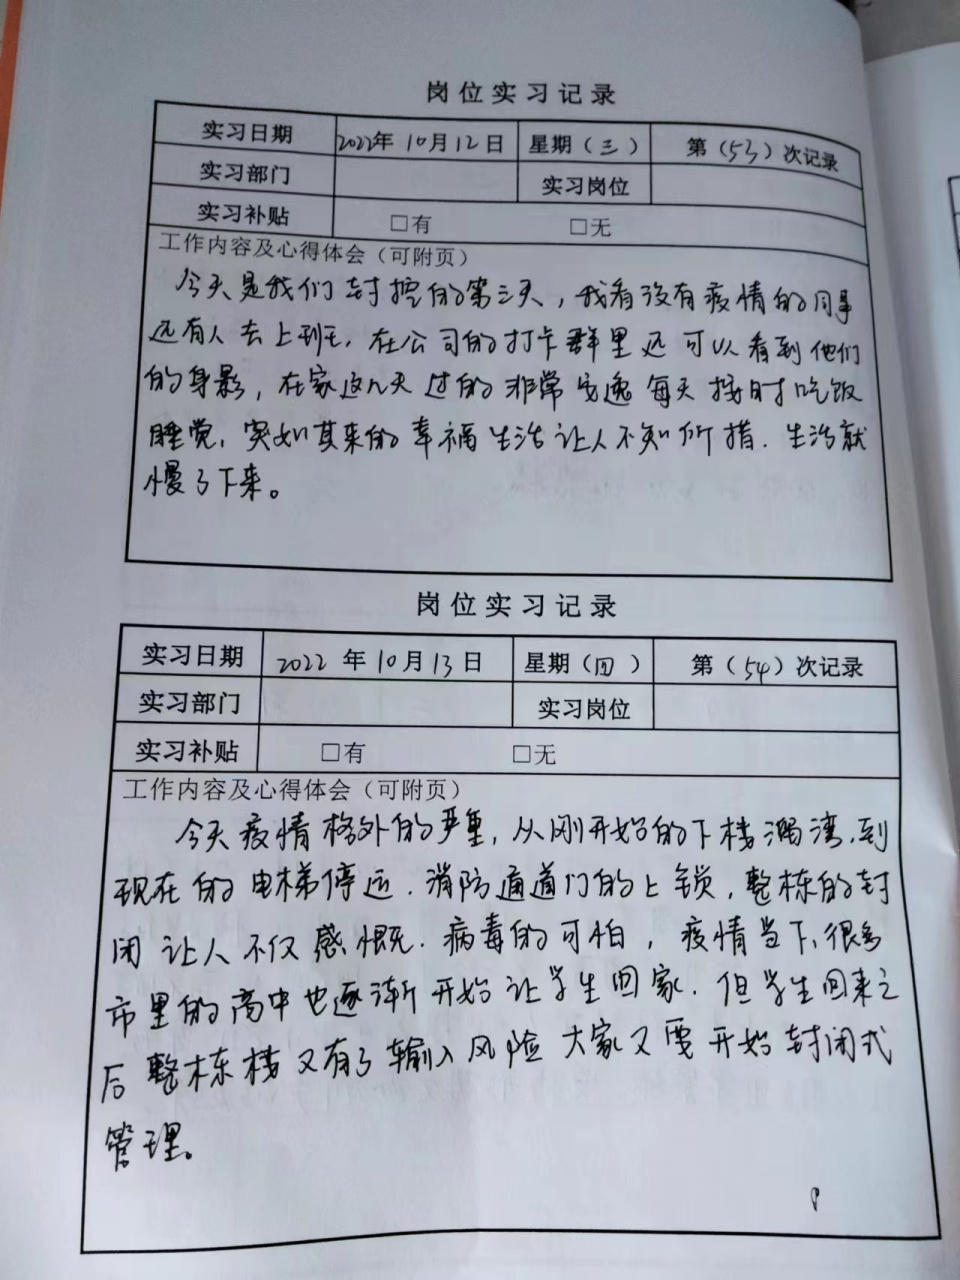 岗位实习记录
实习日期 2022年 10月12日 星期（三） 第（53）次记录
实习部门 实习岗位
实习补贴 □有 □无
工作内容及心得体会（可附页）
今天是我们封控的第三天，我看没有疫情的同事
还有人去上班，在公司的打卡群里还可以看到他们
的身影，在家这几天过的非常安逸每天按时吃饭
睡觉，突如其来的幸福生活让人不知所措.生活就
慢了下来。
岗位实习记录
实习日期 2022 年 10月13日 星期（四） 第（54）次记录
实习部门 实习岗位
实习补贴 □有 □无
工作内容及心得体会（可附页）
今天疫情格外的严重，从刚开始的下楼 ，到
现在的电梯停运.消防通道门的上锁，整栋的封
闭让人不仅感慨.病毒的可怕，疫情当下、很多
市里的高中也逐渐开始让学生回家.但学生回来之
后整栋楼又有了输入风险大家又要开始封闭式
管理。